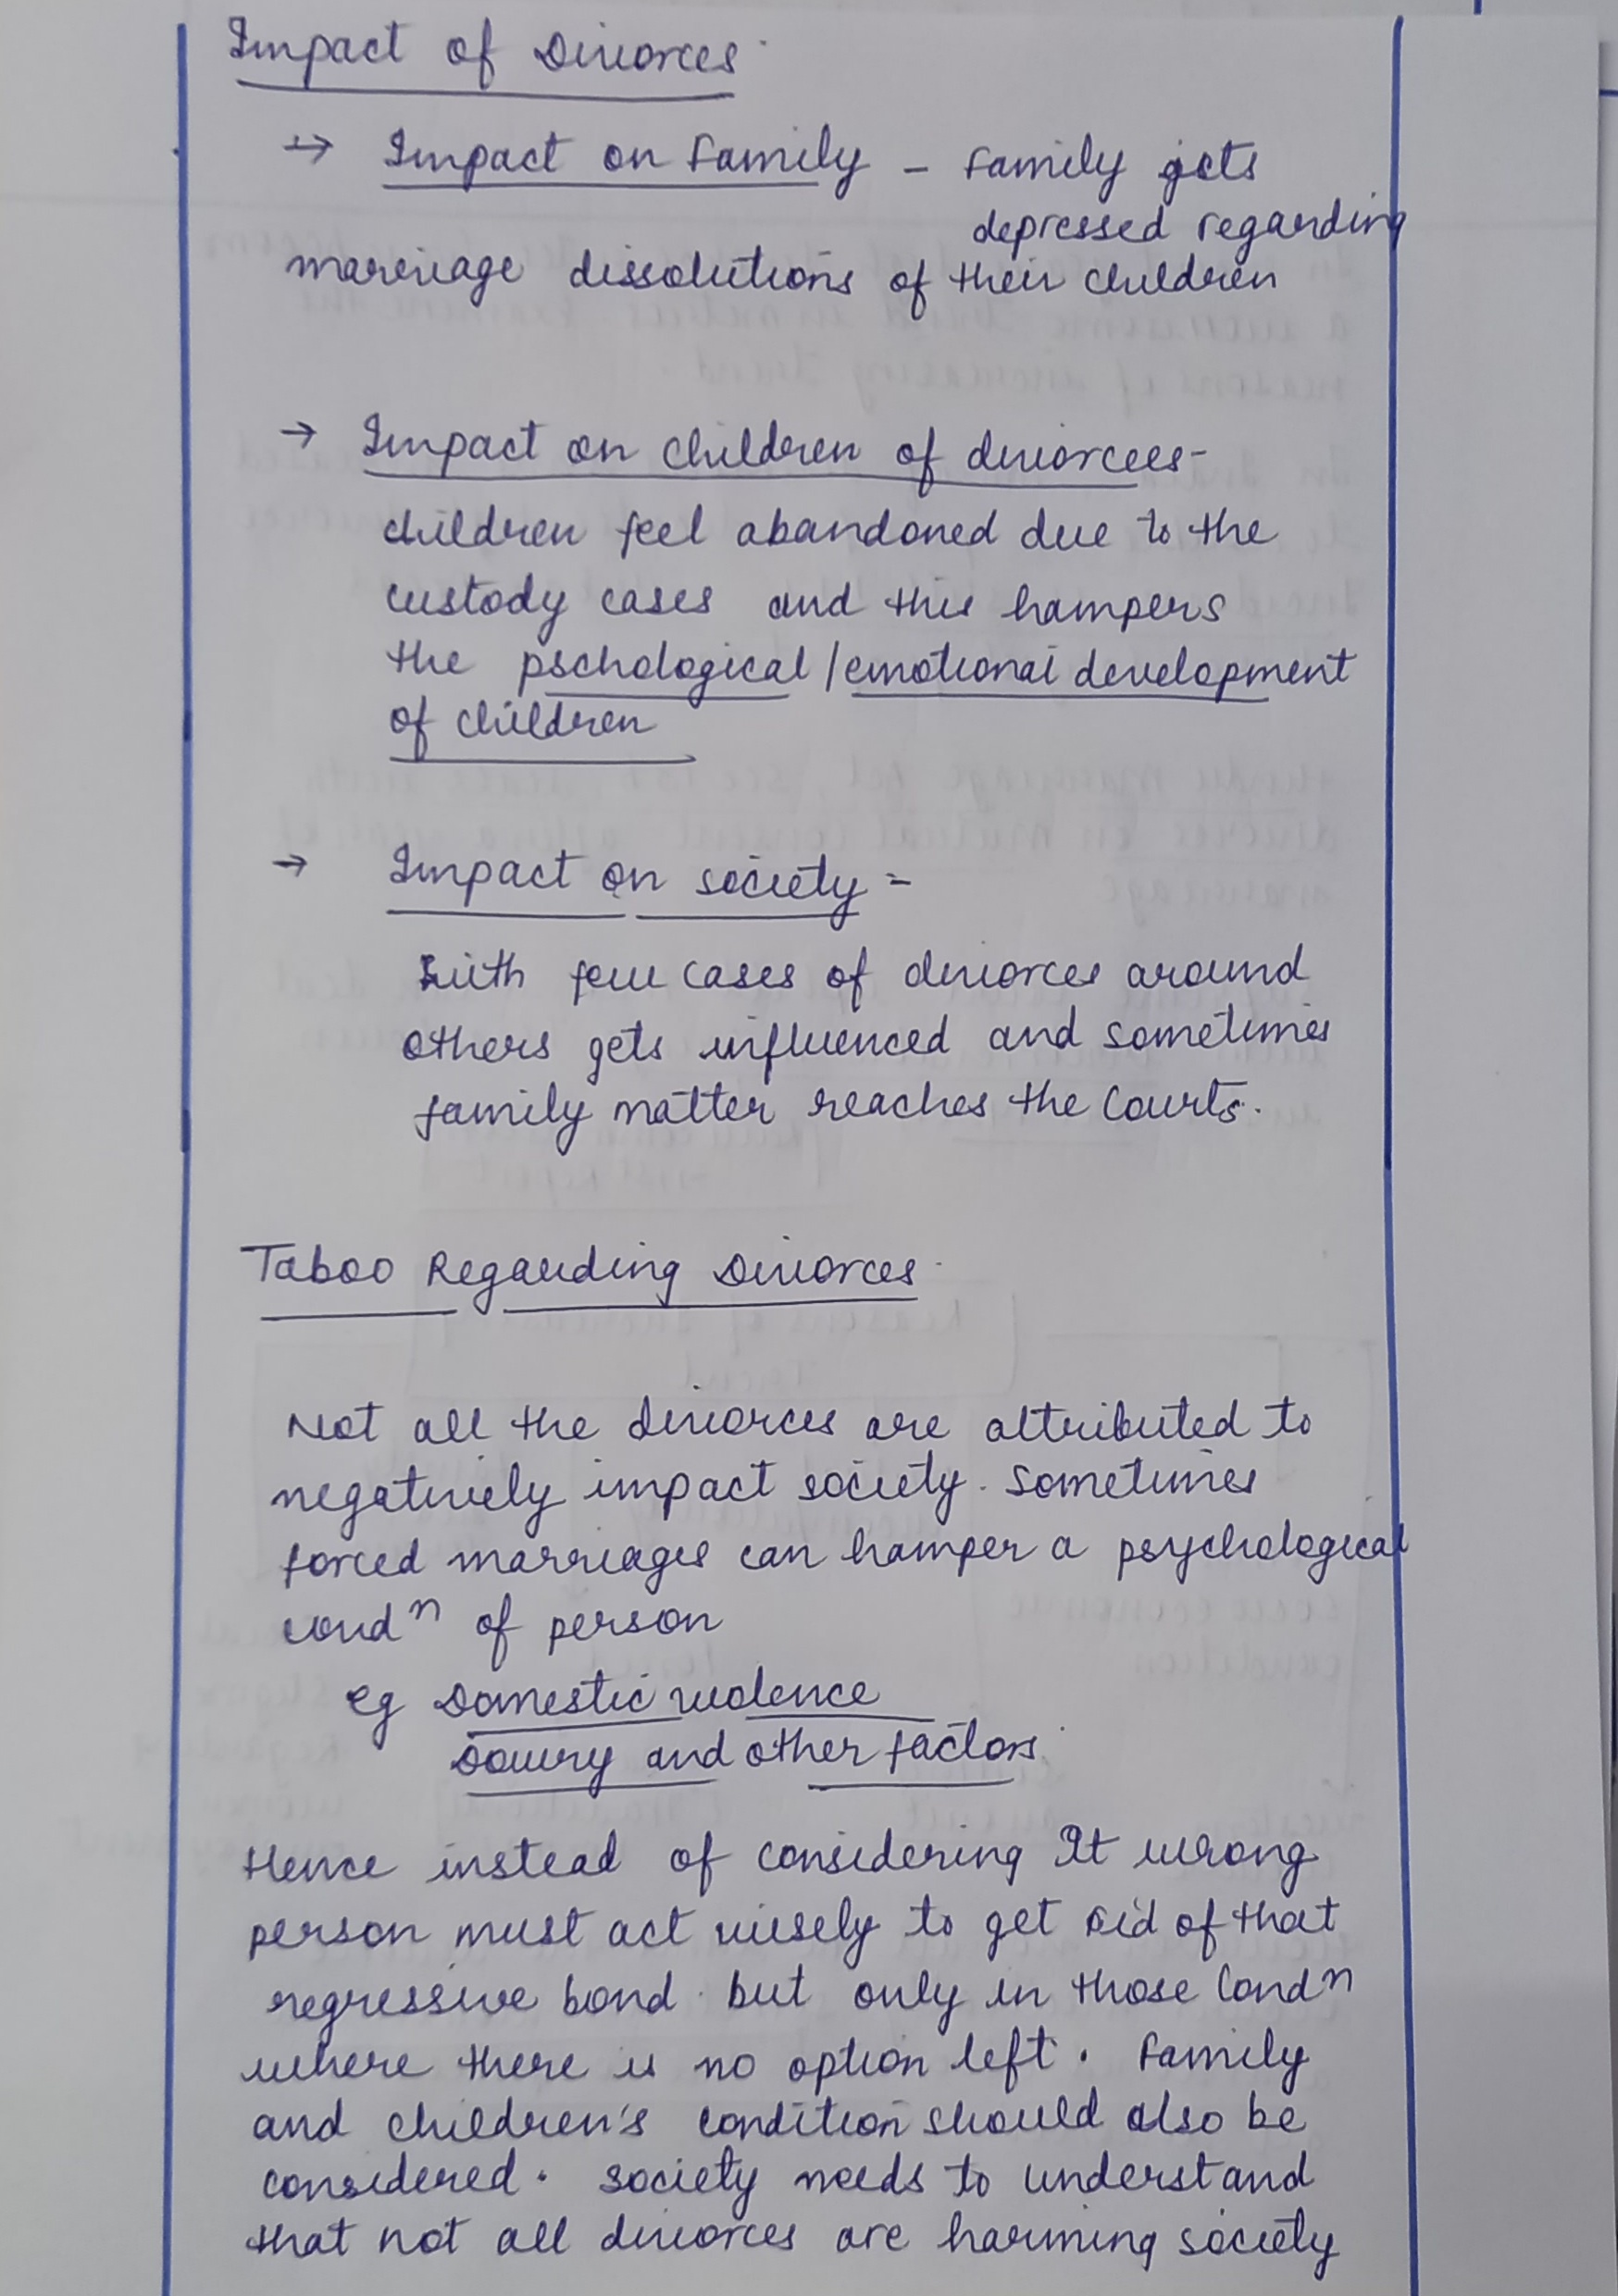 Impact of Divorces
→ Impact on Family - Family gets
depressed regarding
marriage dissolutions of their children
→ Impact on children of divorcees-
children feel abandoned due to the
custody cases and this hampers
the pschological/emotional development
of children
→ Impact on society -
with few cases of divorces around
others gets influenced and sometimes
family matter reaches the Courts.
Taboo Regarding Divorces
Not all the divorces are attributed to
negatively impact society. Sometimes
forced marriages can hamper a psychological
condⁿ of person
eg Domestic violence
Dowry and other factors.
Hence instead of considering It wrong
person must act wisely to get rid of that
regressive bond. but only in those Condⁿ
where there is no option left. Family
and children's condition should also be
considered. society needs to understand
that not all divorces are harming society